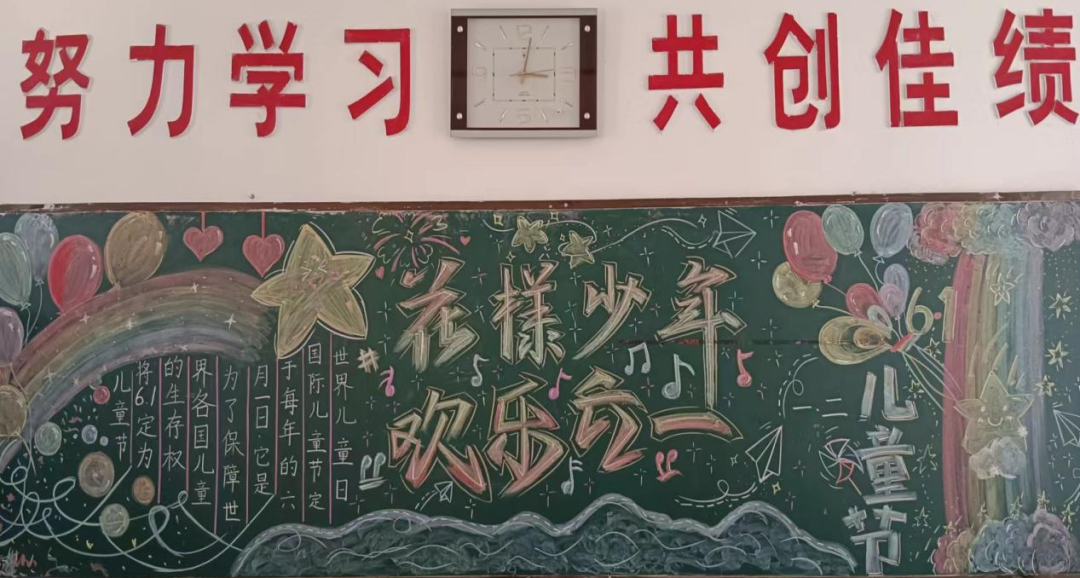 努力学习
共创佳绩
花样少年
欢乐六一
世界儿童日
国际儿童节定
于每年的六
月一日它是
为了保障世
界各国儿童
的生存权
将6.1定为
儿童节
6.1
一二
儿童节